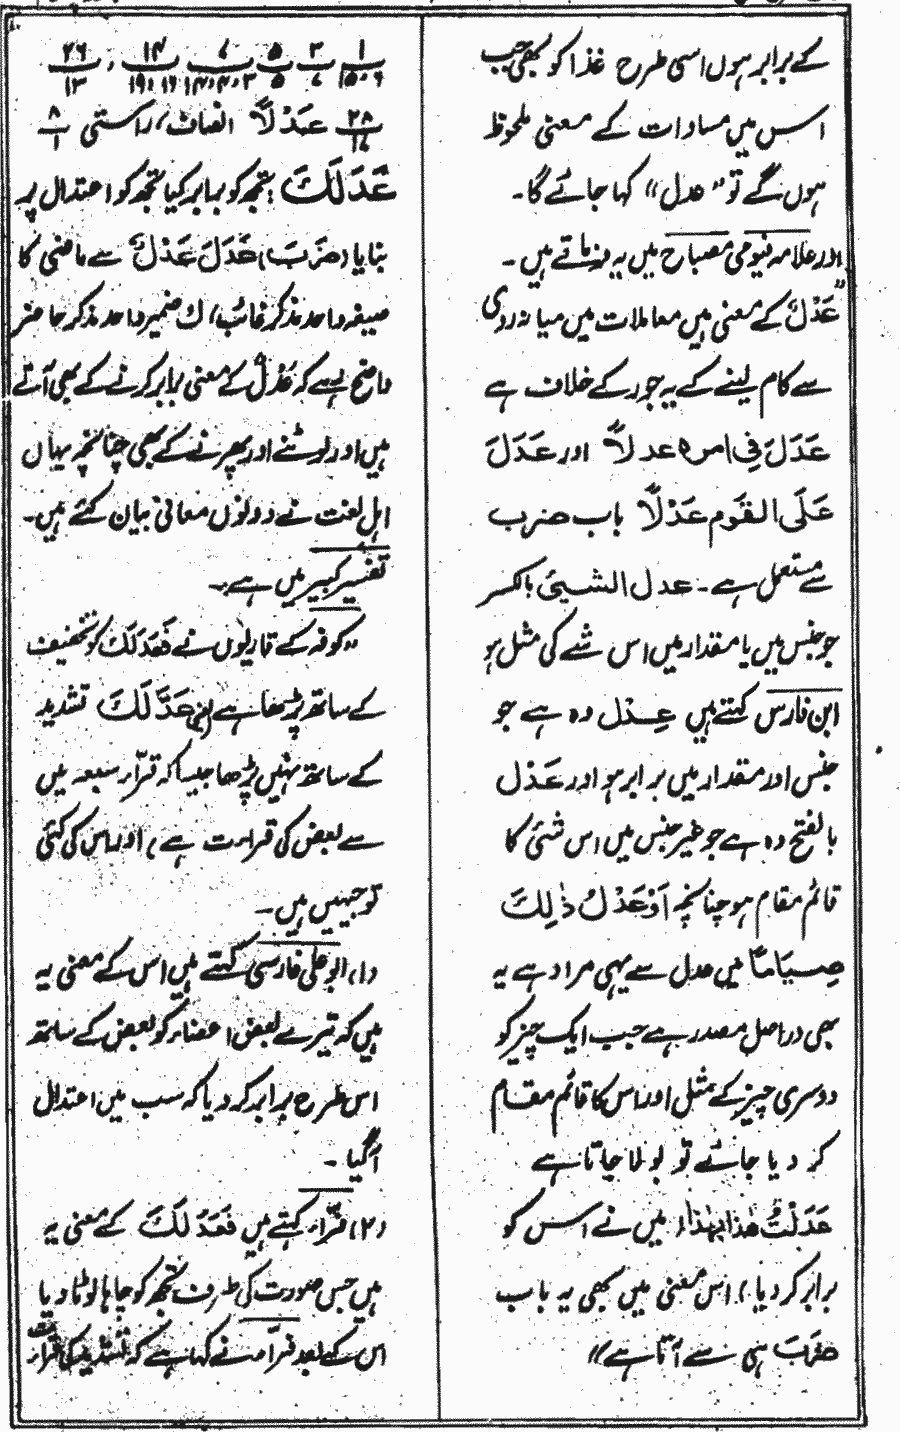 کے برابر ہوں اسی طرح غذا کو بھی جب
اس میں مساوات کے معنی ملحوظ
ہوں گے تو "عدل" کہا جائے گا۔
اور علامہ فیومی مصباح میں یہ فرماتے ہیں۔
"عَدْلٌ کے معنی ہیں معاملات میں میانہ روی
سے کام لینے کے یہ جور کے خلاف ہے
عَدَلَ فِی امرہ عدلاً اور عَدَلَ
عَلَی القَوم عَدْلًا باب ضرب
سے مستعمل ہے۔ عدل الشیئ بالکسر
جو جنس میں یا مقدار میں اس شے کی مثل ہو
ابن فارس کہتے ہیں عِدْل وہ ہے جو
جنس اور مقدار میں برابر ہو اور عَدْل
بالفتح وہ ہے جو غیر جنس میں اس شئ کا
قائم مقام ہو چنانچہ اَوْعَدْلُ ذٰلِكَ
صِیَامًا میں عدل سے یہی مراد ہے یہ
بھی دراصل مصدر ہے جب ایک چیز کو
دوسری چیز کے مثل اور اس کا قائم مقام
کر دیا جائے تو بولا جاتا ہے
عَدَلْتُ ھٰذا بِھٰذا، میں نے اس کو
برابر کر دیا) اس معنی میں بھی یہ باب
ضَرَبَ ہی سے آتا ہے"
۱/۱۵،۶ ۳/۷ ۵/۵ ۷/۱۴،۴،۳ ۱۴/۱۹،۱۶ ، ۲۶/۱۳
۲۸/۱۷ عَدْلًا انصاف، راستی ۸/۱
عَدَلَكَ؛ تجھ کو برابر کیا تجھ کو اعتدال پر
بنایا (ضَرَبَ) عَدَلَ عَدْلٌ سے ماضی کا
صیغہ واحد مذکر غائب، ك ضمیر واحد مذکر حاضر
واضح رہے کہ عَدْلٌ کے معنی برابر کرنے کے بھی آتے
ہیں اور لوٹنے اور پھرنے کے بھی چنانچہ یہاں
اہل لغت نے دونوں معانی بیان کئے ہیں۔
تفسیر کبیر میں ہے:۔
"کوفہ کے قاریوں نے فَعَدَلَكَ کو تخفیف
کے ساتھ پڑھا ہے یعنی عَدَّلَكَ تشدید
کے ساتھ نہیں پڑھا جیسا کہ قرّاء سبعہ میں
سے بعض کی قراءت ہے، اور اس کی کئی
توجیہیں ہیں۔
(۱) ابو علی فارسی کہتے ہیں اس کے معنی یہ
ہیں کہ تیرے بعض اعضاء کو بعض کے ساتھ
اس طرح برابر کر دیا کہ سب میں اعتدال
آگیا۔
(۲) فرّاء کہتے ہیں فَعَدَ لَكَ کے معنی یہ
ہیں جس صورت کی طرف تجھ کو چاہا لوٹا دیا
اس کے بعد فراء نے کہا ہے کہ تشدید کی قراءت